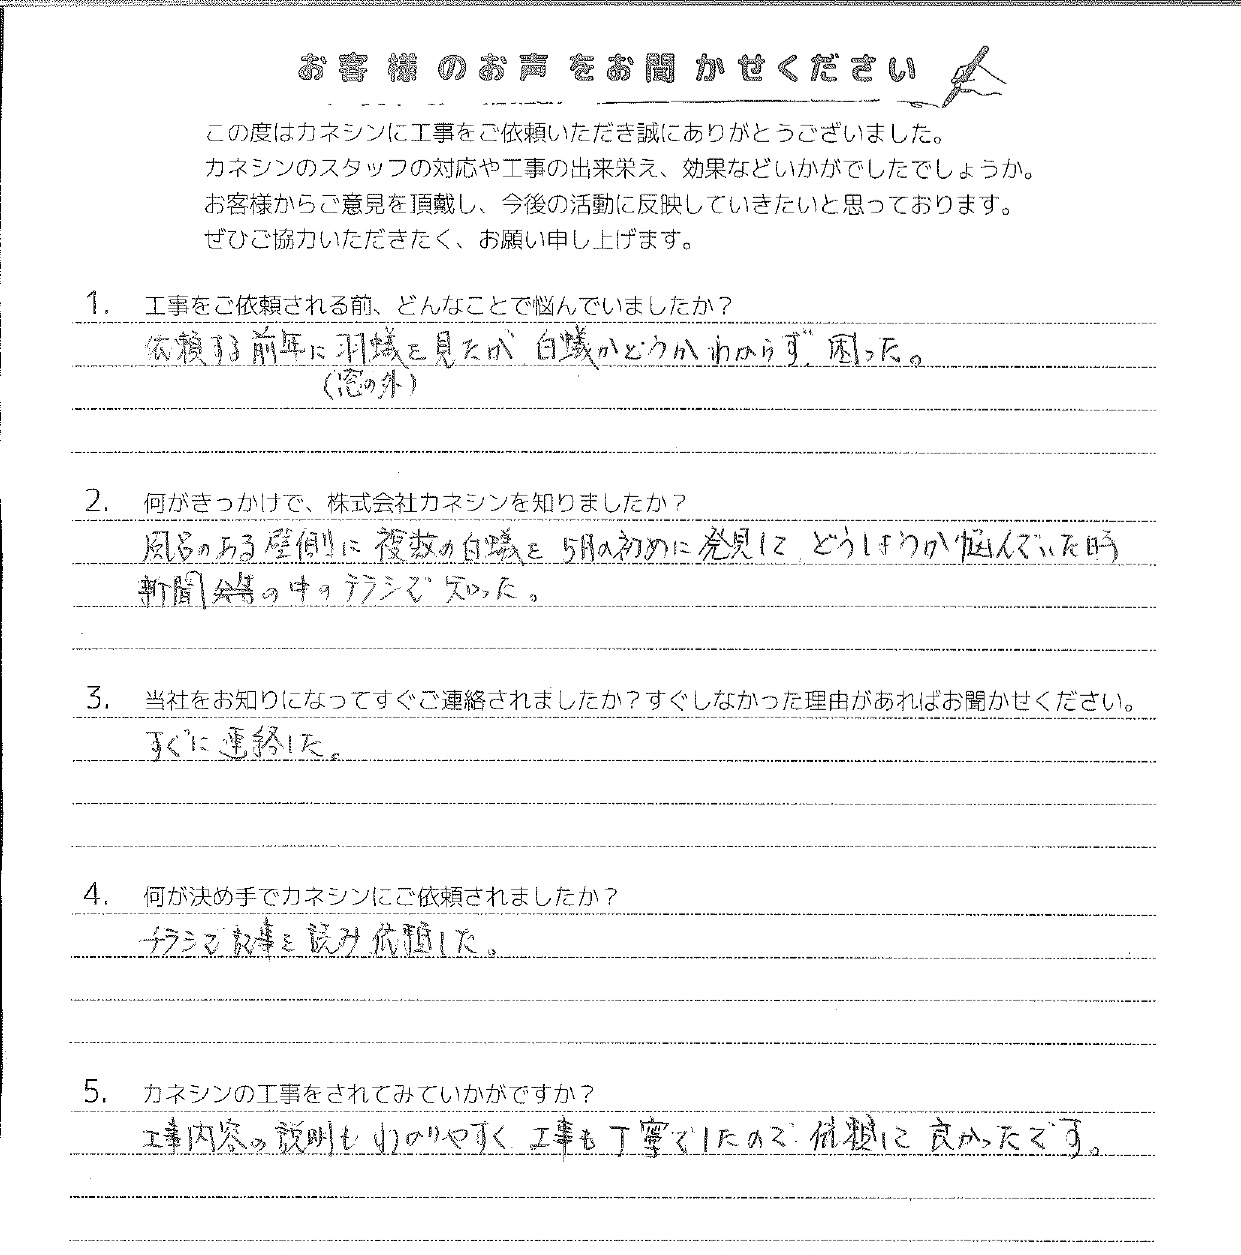 お客様のお声をお聞かせください
この度はカネシンに工事をご依頼いただき誠にありがとうございました。
カネシンのスタッフの対応や工事の出来栄え、効果などいかがでしたでしょうか。
お客様からご意見を頂戴し、今後の活動に反映していきたいと思っております。
ぜひご協力いただきたく、お願い申し上げます。
1. 工事をご依頼される前、どんなことで悩んでいましたか？
依頼する前年に羽蟻を見たが 白蟻かどうかわからず、困った。
（窓の外）
2. 何がきっかけで、株式会社カネシンを知りましたか？
風呂のある壁側に複数の白蟻を5月の初めに発見して、どうしようか悩んでいた時
新聞の中のチラシで知った。
3. 当社をお知りになってすぐご連絡されましたか？すぐしなかった理由があればお聞かせください。
すぐに連絡した。
4. 何が決め手でカネシンにご依頼されましたか？
チラシで記事を読み依頼した。
5. カネシンの工事をされてみていかがですか？
工事内容の説明もわかりやすく 工事も丁寧でしたので 依頼して良かったです。